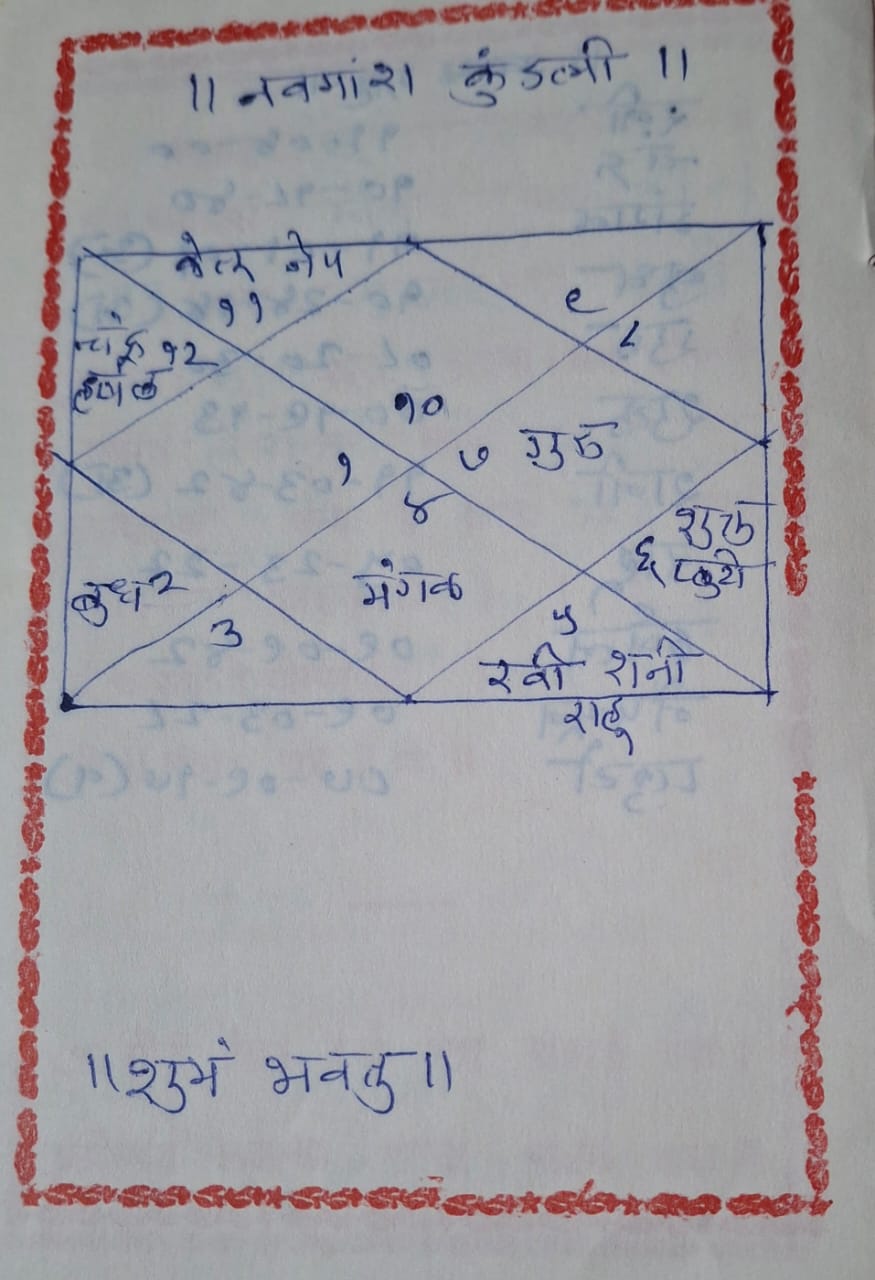 ॥ नवमांश कुंडली ॥
केतू नेप
११
९
८
चंद्र १२
हर्षल
१०
१
७ गुरु
४
शुक्र
६ प्लुटो
बुध २
मंगळ
३
५
रवी शनी
राहू
॥ शुभं भवतु ॥